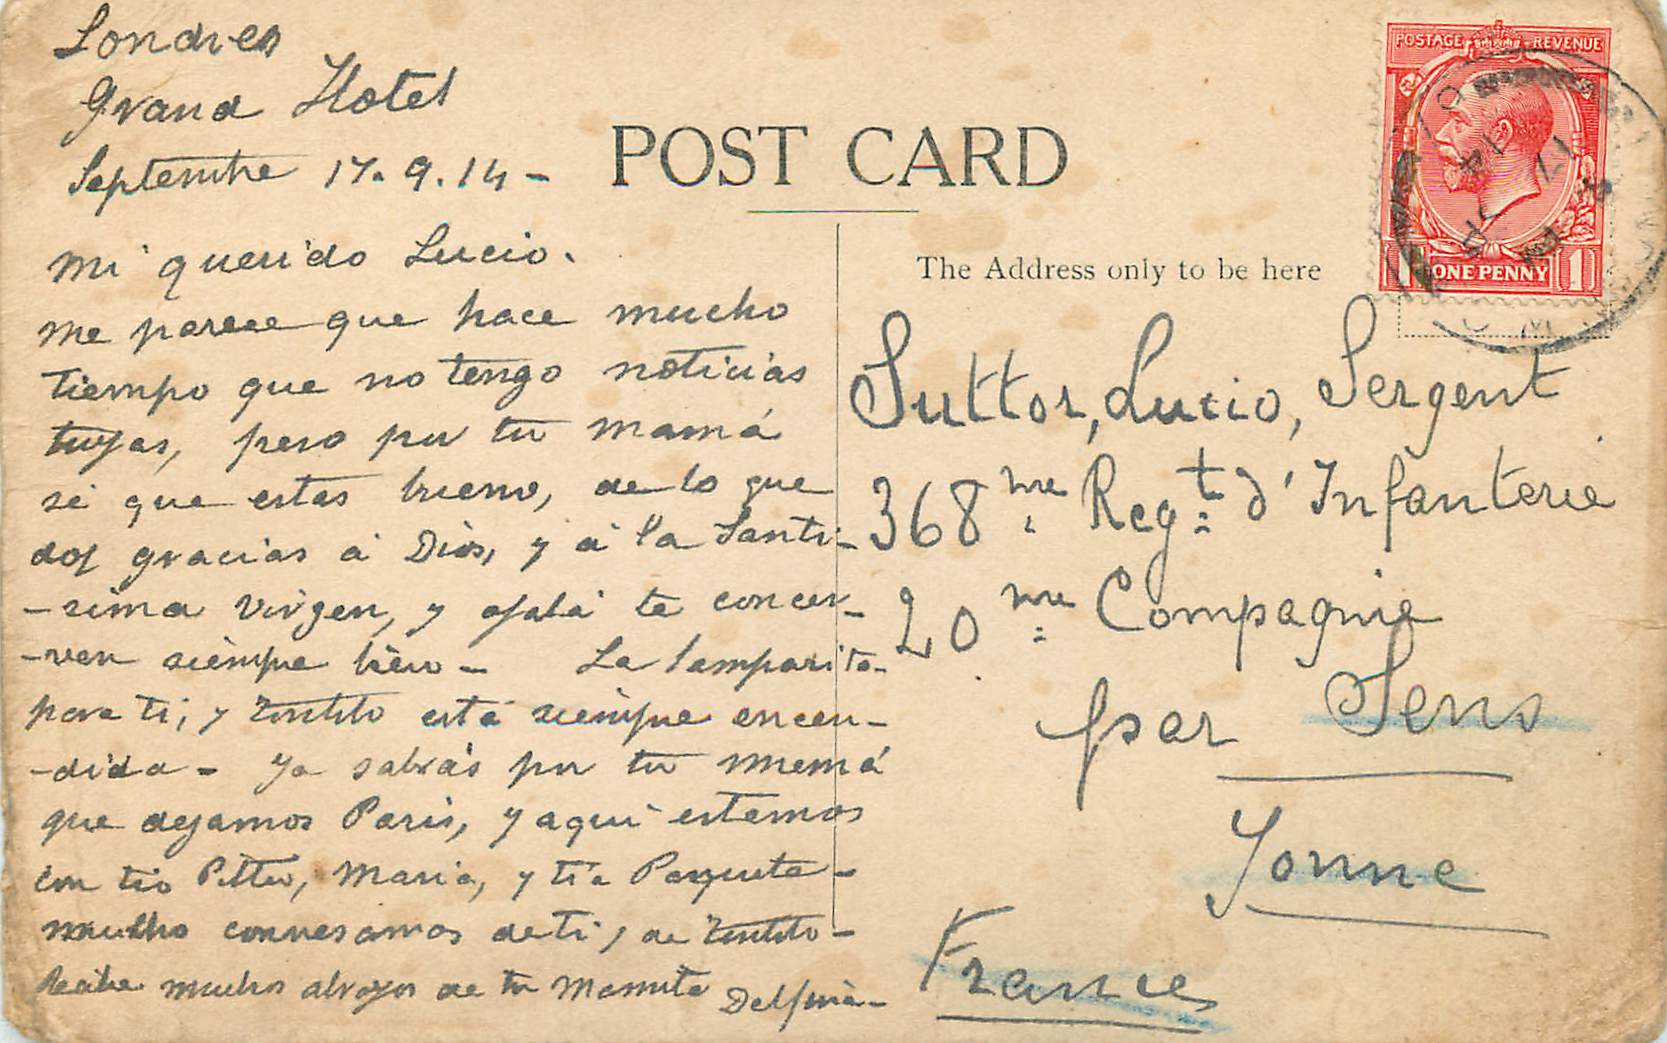 Londres
Grand Hotel
Septembre 17.9.14-
Mi querido Lucio.
me parece que hace mucho
tiempo que no tengo noticias
tuyas, pero por tu mamá
sé que estas bueno, de lo que
doy gracias á Dios, y á la Santi-
-sima Virgen, y ojalá te concer-
-ven siempre bien- La lamparita
para ti, y está siempre encen-
-dida- Ya sabrás por tu memá
que dejamos Paris, y aqui estamos
con tio, Maria, y tia Paquita-
mucho conversamos de ti, de
Recibe muchos abrazos de tu Mamita Delfina-
POST CARD
The Address only to be here
POSTAGE REVENUE
1 ONE PENNY 1
Suttor, Lucio, Sergent
368 me Regt. d'Infanterie
20 me Compagnie
par Sens
Yonne
France